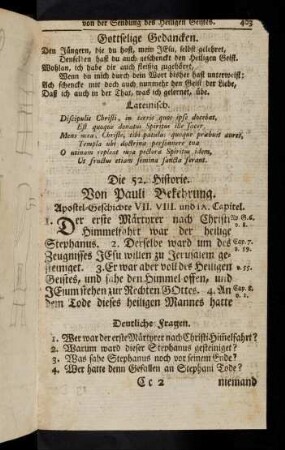 von der Sendung des Heiligen Geistes. 403
Gottselige Gedancken.
Den Jüngern, die du hast, mein JEsu, selbst gelehret,
Denselben hast du auch geschenckt den Heiligen Geist.
Wohlan, ich habe dir auch fleißig zugehöret,
Wenn du mich durch dein Wort bisher hast unterweist;
Ach schencke mir doch auch nunmehr den Geist der Liebe,
Daß ich auch in der That, was ich gelernet, übe.
Lateinisch.
Discipulis Christi, in terris quos ipse docebat,
Est quoque donatus Spiritus ille sacer.
Mens mea, Christe, tibi patulas quoque præbuit aures,
Templa ubi doctrina personuere tua
O utinam repleat mea pectora Spiritus idem,
Ut fructus etiam semina sancta ferant.
Die 52. Historie.
Von Pauli Bekehrung.
Apostel-Geschichte VII. VIII. und IX. Capitel.
1. Der erste Märtyrer nach Christi
Himmelfahrt war der heilige
Stephanus. 2. Derselbe ward um des Cap. 7.
Zeugnisses JEsu willen zu Jerusalem ge- v. 59.
steiniget. 3. Er war aber voll des Heiligen v. 55.
Geistes, und sahe den Himmel offen, und
JEsum stehen zur Rechten GOttes. 4. An Cap. 8.
dem Tode dieses heiligen Mannes hatte v. 1.
Deutliche Fragen.
1. Wer war der erste Märtyrer nach Christi Himelfahrt?
2. Warum ward dieser Stephanus gesteiniget?
3. Was sahe Stephanus noch vor seinem Ende?
4. Wer hatte denn Gefallen an Stephani Tode?
Cc 2 niemand